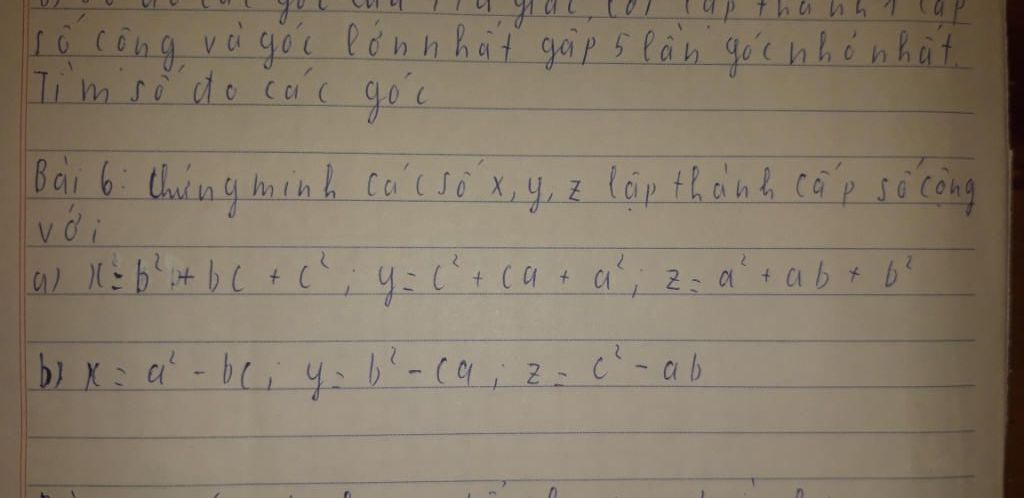 số đo các góc của 1 tứ giác lồi lập thành 1 cấp
số cộng và góc lớn nhất gấp 5 lần góc nhỏ nhất.
Tìm số đo các góc
Bài 6: Chứng minh các số x, y, z lập thành cấp số cộng
với
a) x = b² + bc + c² ; y = c² + ca + a² ; z = a² + ab + b²
b) x = a² - bc ; y = b² - ca ; z = c² - ab